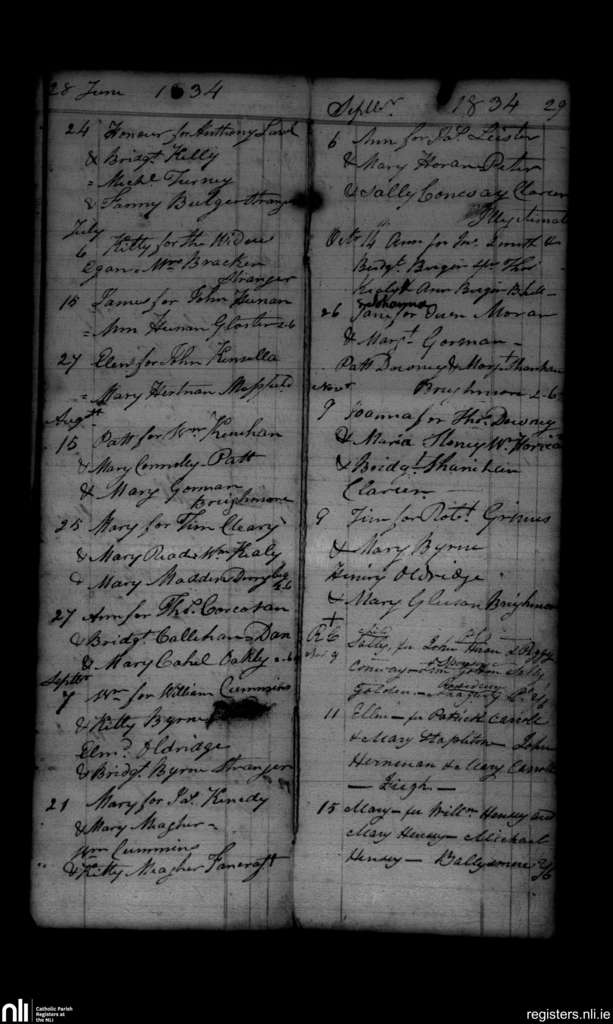 28 June 1834
24 Honour for Anthony
& Bridgt Kelly
= Michl Turney
& Fanny Bulger Stranger
July
6 Kitty for the Widow
Egan - Mrs Bracken
Stranger
15 James for John Heenan
= Ann Heenan Gloster 2-6
27 Elen for John Kinsella
= Mary Hertnan
Augst
15 Patt for Wm Kinehan
& Mary Connoley - Patt
& Mary Gorman
Brighmore
25 Mary for Tim Cleary
& Mary Read = Wm Healy
& Mary Madden 2-6
27 Ann for Thos Corcoran
& Bridgt Callehan = Dan
& Mary Cahel Oakley 2-6
Septbr
7 Wm for William Cummins
& Kitty Byrne
Edmd Oldridge
& Bridgt Byrne Stranger
21 Mary for Jas Kenedy
& Mary Meagher =
Wm Cummins
& Kitty Meagher Fancroft
Septbr 1834 29
6 Ann for Jas Leister
& Mary Horan Peter
& Sally Conway Clareen
Illigitimate
Octr 14 Ann for Jas Smith &
Bridgt Bergin Thos
Healy & Ann Bergin
26 Jane for Owen Moran
& Margt Gorman -
Patt Downey & Margt Shanahan
Novr Brighmore 2-6
9 Joanna for Thos Downey
& Maria Honey Wm
& Bridgt Shanehan
Clareen
9 Tim for Robt Grimes
& Mary Byrne
Henry Oldridge
& Mary Gleeson Brighmore
Sally, for John & Peggy
Conway Sally
Golden
11 Ellen - for Patrick Carroll
& Mary Stapleton - John
Herenan & Mary Carroll
- Leigh -
15 Mary - for Willm Hensey and
Mary Hensey - Michael
Hensey - 2/6
nli Catholic Parish
Registers at
the NLI
registers.nli.ie